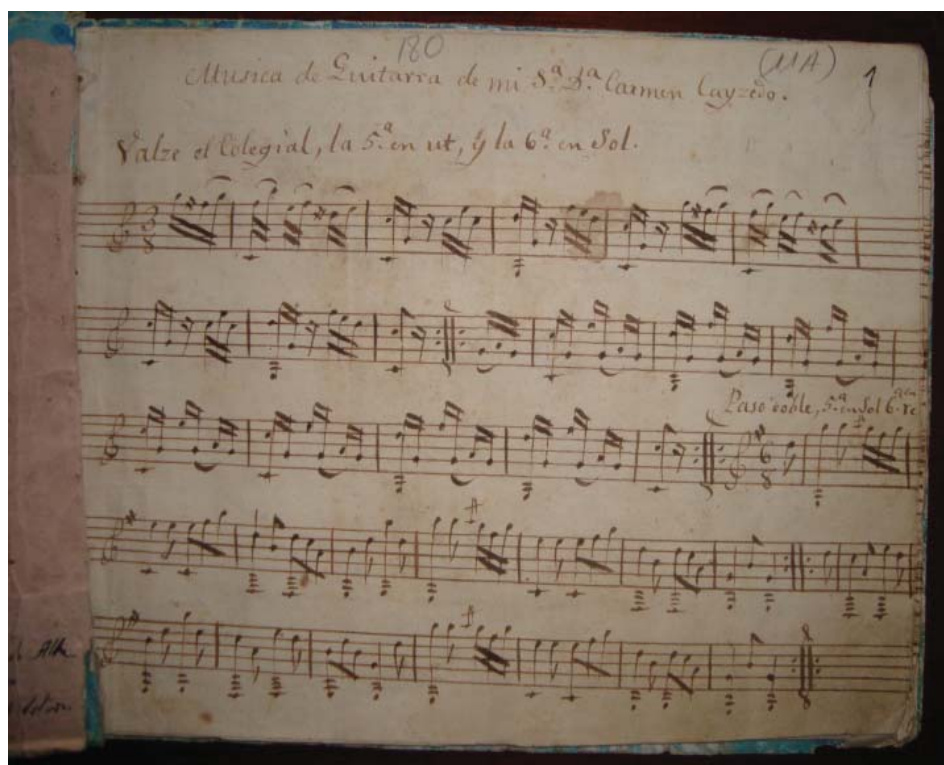 180
(MA) 1
Musica de Guitarra de mi S.ª D.ª Carmen Cayzedo.
Valze el Colegial, la 5.ª en ut, ÿ la 6.ª en Sol.
3
8
Paso doble, 5.ª en Sol 6.ª en re
6
8